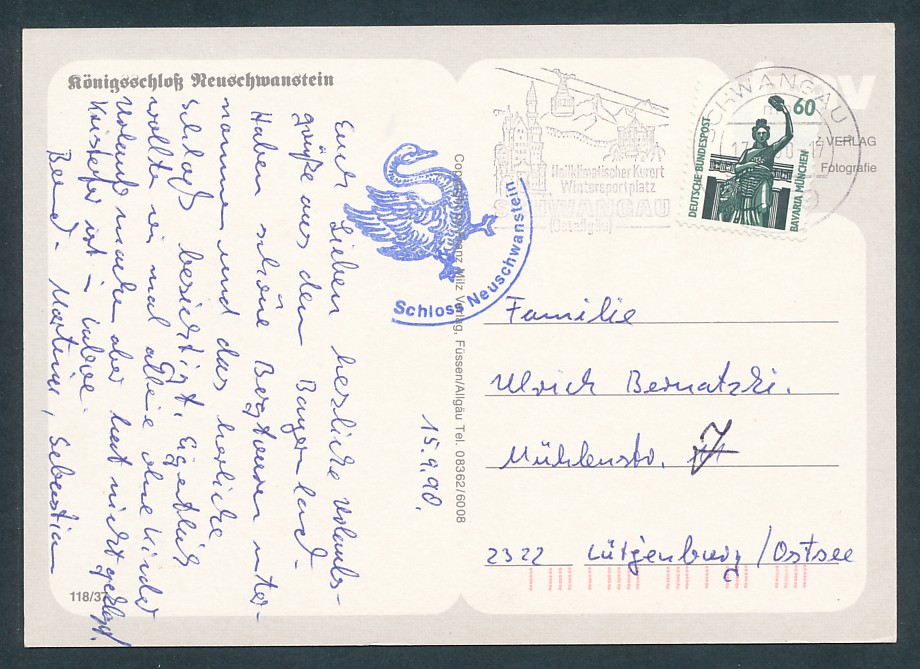 Königsschloß Neuschwanstein
15.9.90.
Euch Lieben herzliche Urlaubs-
grüße aus dem Bayernland.
Haben schöne Bergtouren unter-
nommen und das herrliche
Schloß besichtigt. Eigentlich
wollten wir mal alleine ohne Kinder
Urlaub machen aber hat nicht geklappt.
Kristofer ist
Bernd - Martina, Sebastian
118/37
Schloss Neuschwanstein
Copyright Franz Milz Verlag, Füssen/Allgäu Tel. 08362/6008
Heilklimatischer Kurort
Wintersportplatz
SCHWANGAU
(Ostallgäu)
SCHWANGAU
DEUTSCHE BUNDESPOST
60
BAVARIA MÜNCHEN
VERLAG
Fotografie
Familie
Ulrich Bernatzki.
Mühlenstr. 7
2322 Lütjenburg / Ostsee